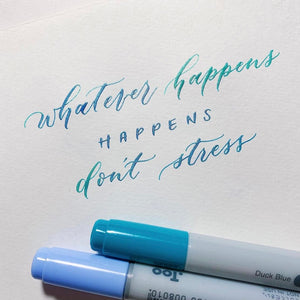 whatever happens
HAPPENS
don't stress
Duck Blue